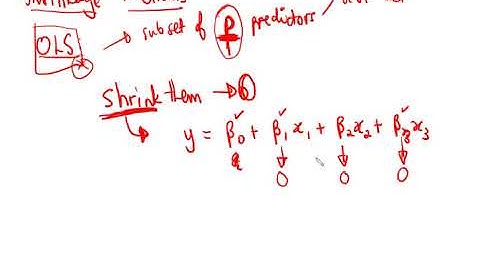 Shrinkage
OLS → subset of p predictors
1
shrink them → 0
y = β₀ + β₁x₁ + β₂x₂ + β₃x₃
0 0 0